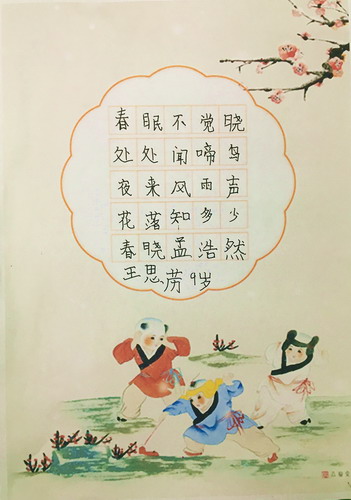 春眠不觉晓
处处闻啼鸟
夜来风雨声
花落知多少
春晓孟浩然
王思苈9岁